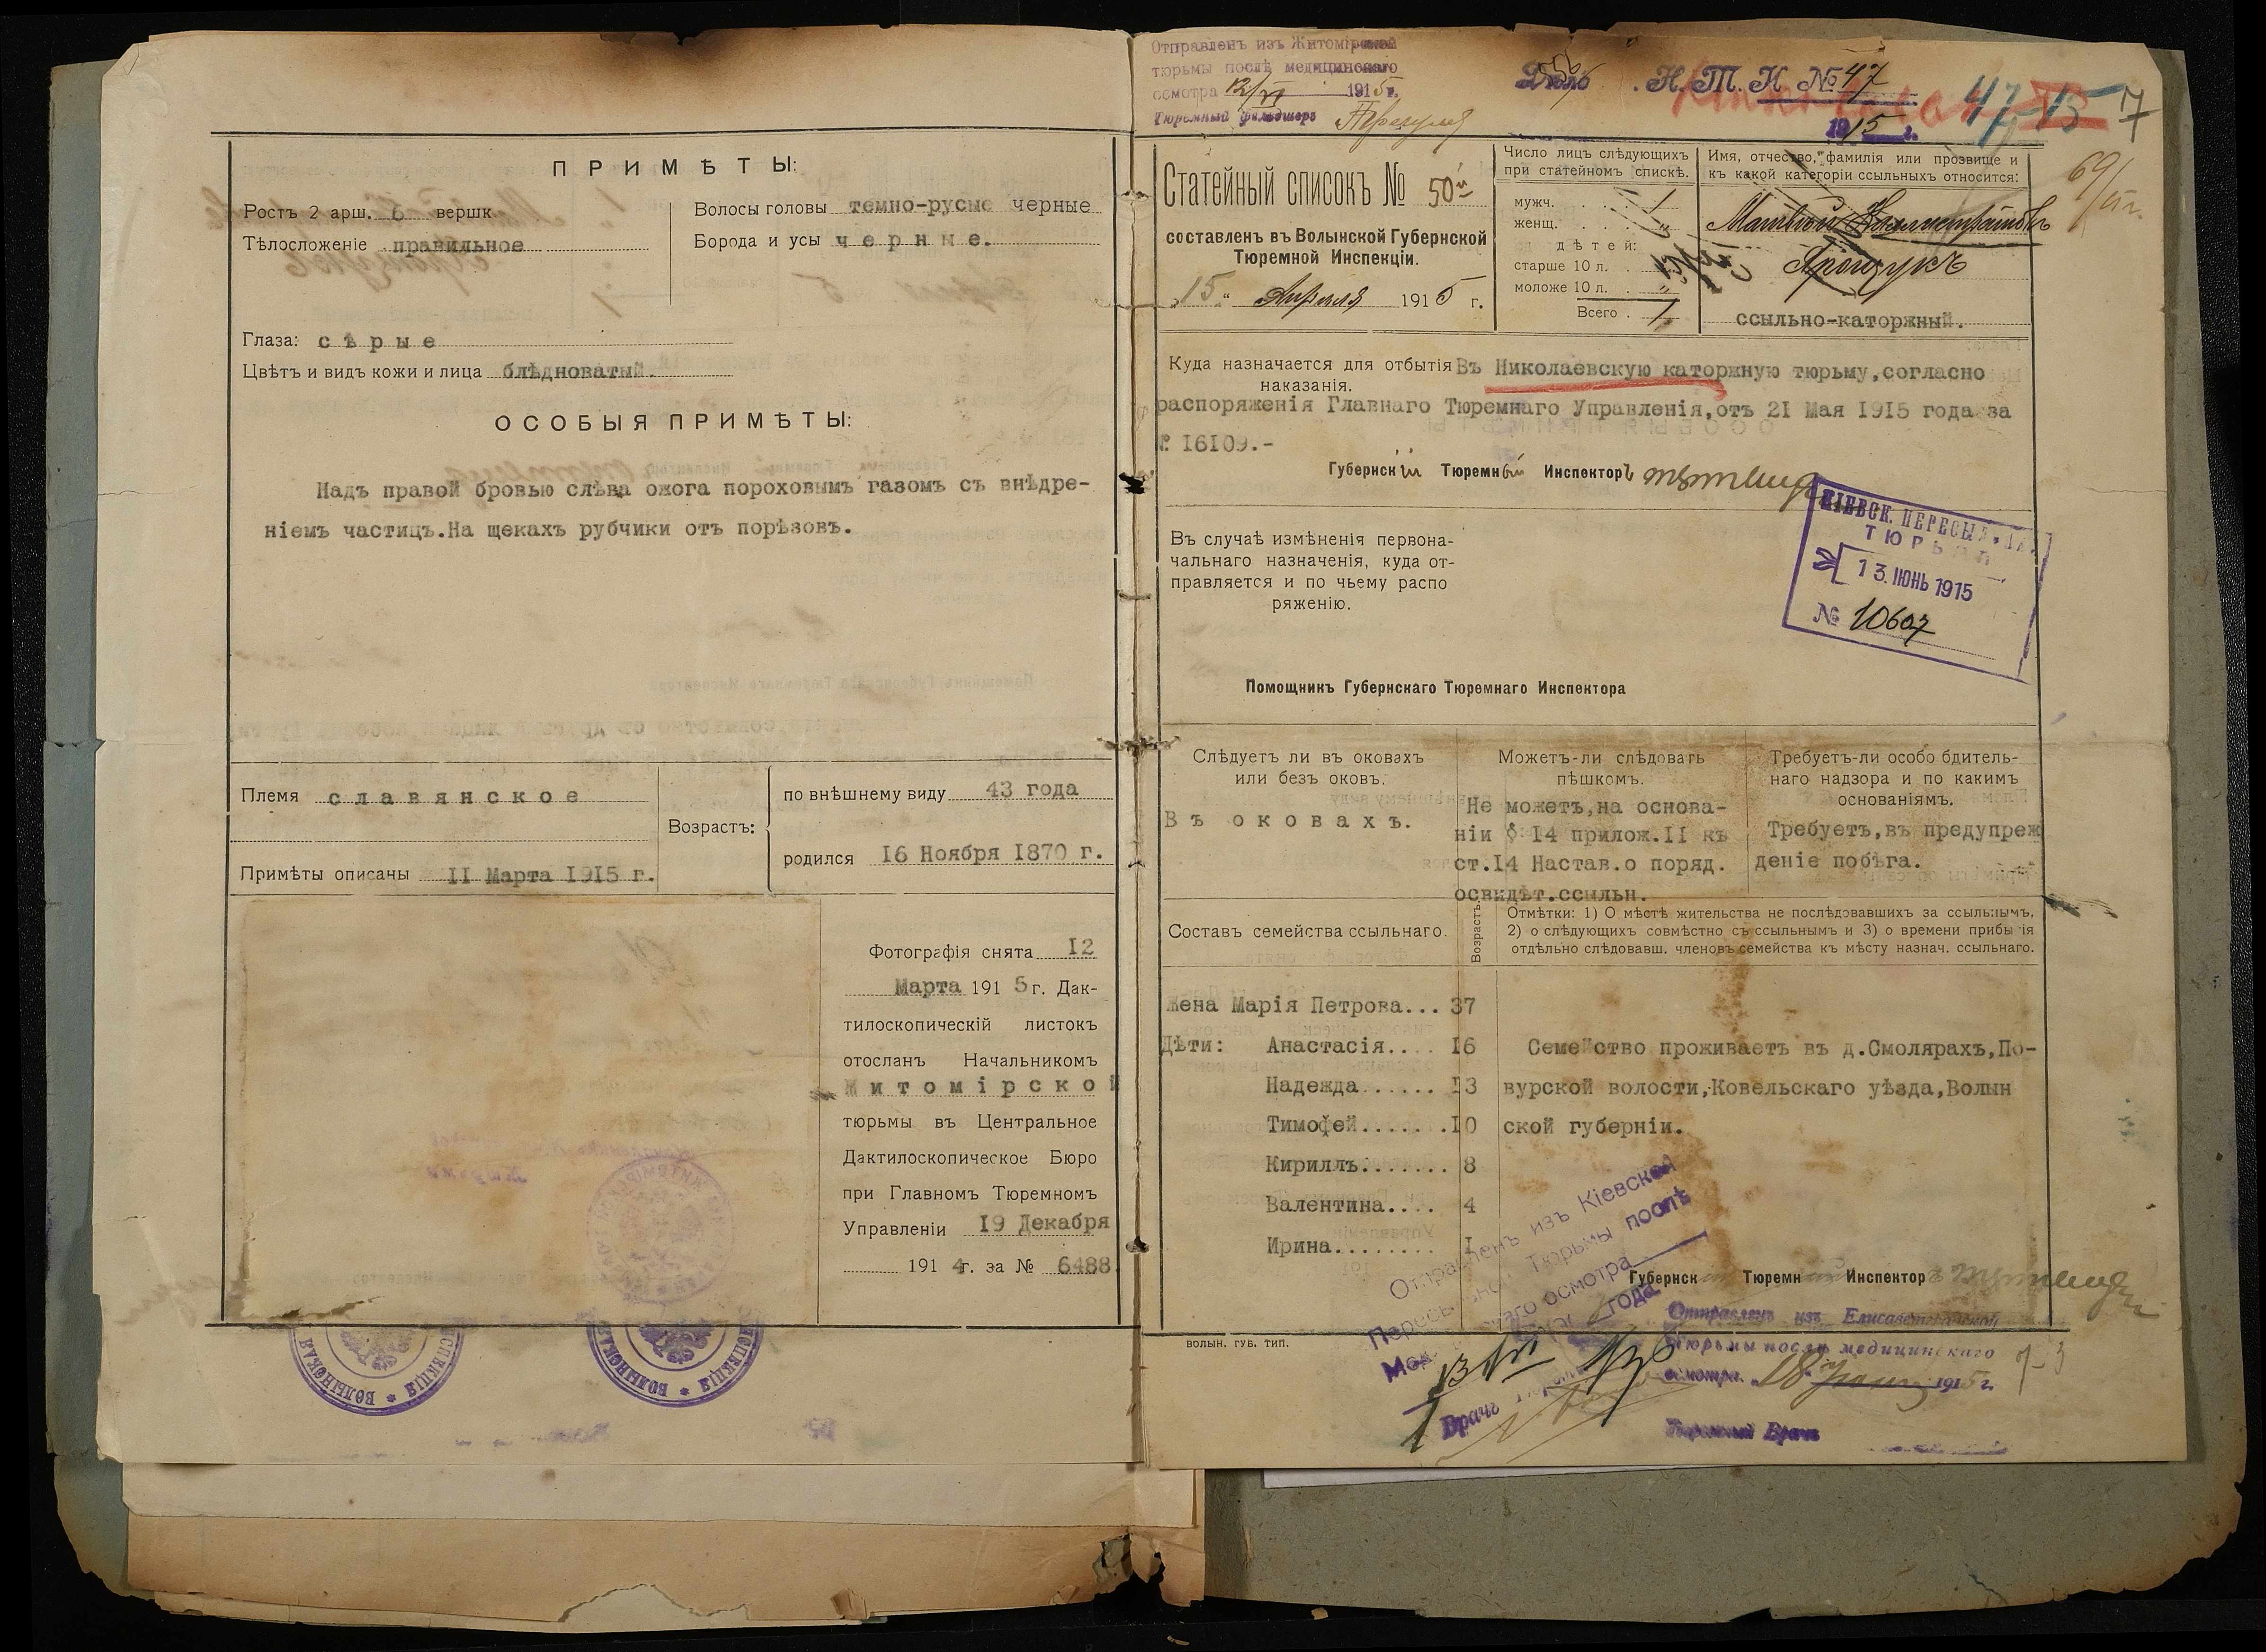 ПРИМѢТЫ:
Ростъ 2 арш. 6 вершк
Тѣлосложеніе правильное
Волосы головы темно-русые черные
Борода и усы черные.
Глаза: сѣрые
Цвѣтъ и видъ кожи и лица блѣдноватый.
ОСОБЫЯ ПРИМѢТЫ:
Надъ правой бровью слѣва ожога пороховымъ газомъ съ внѣдре-
ніемъ частицъ.На щекахъ рубчики отъ порѣзовъ.
Племя славянское
Примѣты описаны 11 Марта 1915 г.
Возрастъ:
по внѣшнему виду 43 года
родился 16 Ноября 1870 г.
Фотографія снята 12
Марта 1915 г. Дак-
тилоскопическій листокъ
отосланъ Начальникомъ
Житомірской
тюрьмы въ Центральное
Дактилоскопическое Бюро
при Главномъ Тюремномъ
Управленіи 19 Декабря
1914 г. за № 6488
Отправленъ изъ Житомірской
тюрьмы послѣ медицинскаго
осмотра 12/VI 1915 г.
Тюремный фельдшеръ
Дѣло Н. Т. К №47
1915 г.
47-15
7
69/15 г.
Статейный списокъ № 50
составленъ въ Волынской Губернской
Тюремной Инспекціи.
„15„ Апрѣля 1915 г.
Число лицъ слѣдующихъ
при статейномъ спискѣ.
мужч. 1
женщ. "
дѣтей:
старше 10 л. "
моложе 10 л. "
Всего 1.
Имя, отчество, фамилія или прозвище и
къ какой категоріи ссыльныхъ относится:
Матвѣй
ссыльно-каторжный.
Куда назначается для отбытія
наказанія.
Въ Николаевскую каторжную тюрьму,согласно
распоряженія Главнаго Тюремнаго Управленія,отъ 21 Мая 1915 года за
№ 16109.-
Губернскій Тюремный Инспекторъ
КІЕВСК. ПЕРЕСЫЛ.
ТЮРЬМА
13. ІЮНЬ 1915
№ 10607
Въ случаѣ измѣненія первона-
чальнаго назначенія, куда от-
правляется и по чьему распо
ряженію.
Помощникъ Губернскаго Тюремнаго Инспектора
Слѣдуетъ ли въ оковахъ
или безъ оковъ.
Въ оковахъ.
Можетъ-ли слѣдовать
пѣшкомъ.
Не можетъ,на основа-
ніи § 14 прилож.II къ
ст.14 Настав.о поряд.
освидѣт.ссыльн.
Требуетъ-ли особо бдитель-
наго надзора и по какимъ
основаніямъ.
Требуетъ,въ предупреж
деніе побѣга.
Составъ семейства ссыльнаго.
Возрастъ.
Отмѣтки: 1) О мѣстѣ жительства не послѣдовавшихъ за ссыльнымъ,
2) о слѣдующихъ совмѣстно съ ссыльнымъ и 3) о времени прибытія
отдѣльно слѣдовавш. членовъ семейства къ мѣсту назнач. ссыльнаго.
Жена Марія Петрова... 37
Дѣти: Анастасія.... 16
Надежда...... 13
Тимофей.......10
Кириллъ....... 8
Валентина.... 4
Ирина........ 1
Семейство проживаетъ въ д.Смолярахъ,По-
вурской волости,Ковельскаго уѣзда,Волын
ской губерніи.
Отправленъ изъ Кіевской
Пересыльной Тюрьмы послѣ
Мед. осмотра
года
Врачъ
Губернск Тюремн Инспектор
Отправленъ изъ Елисаветградской
Тюрьмы послѣ медицинскаго
осмотра. 18 1915 г.
Тюремный Врачъ
ВОЛЫН. ГУБ. ТИП.
ВОЛЫНСКАЯ
ИНСПЕКЦІЯ
ВОЛЫНСКАЯ
ИНСПЕКЦІЯ